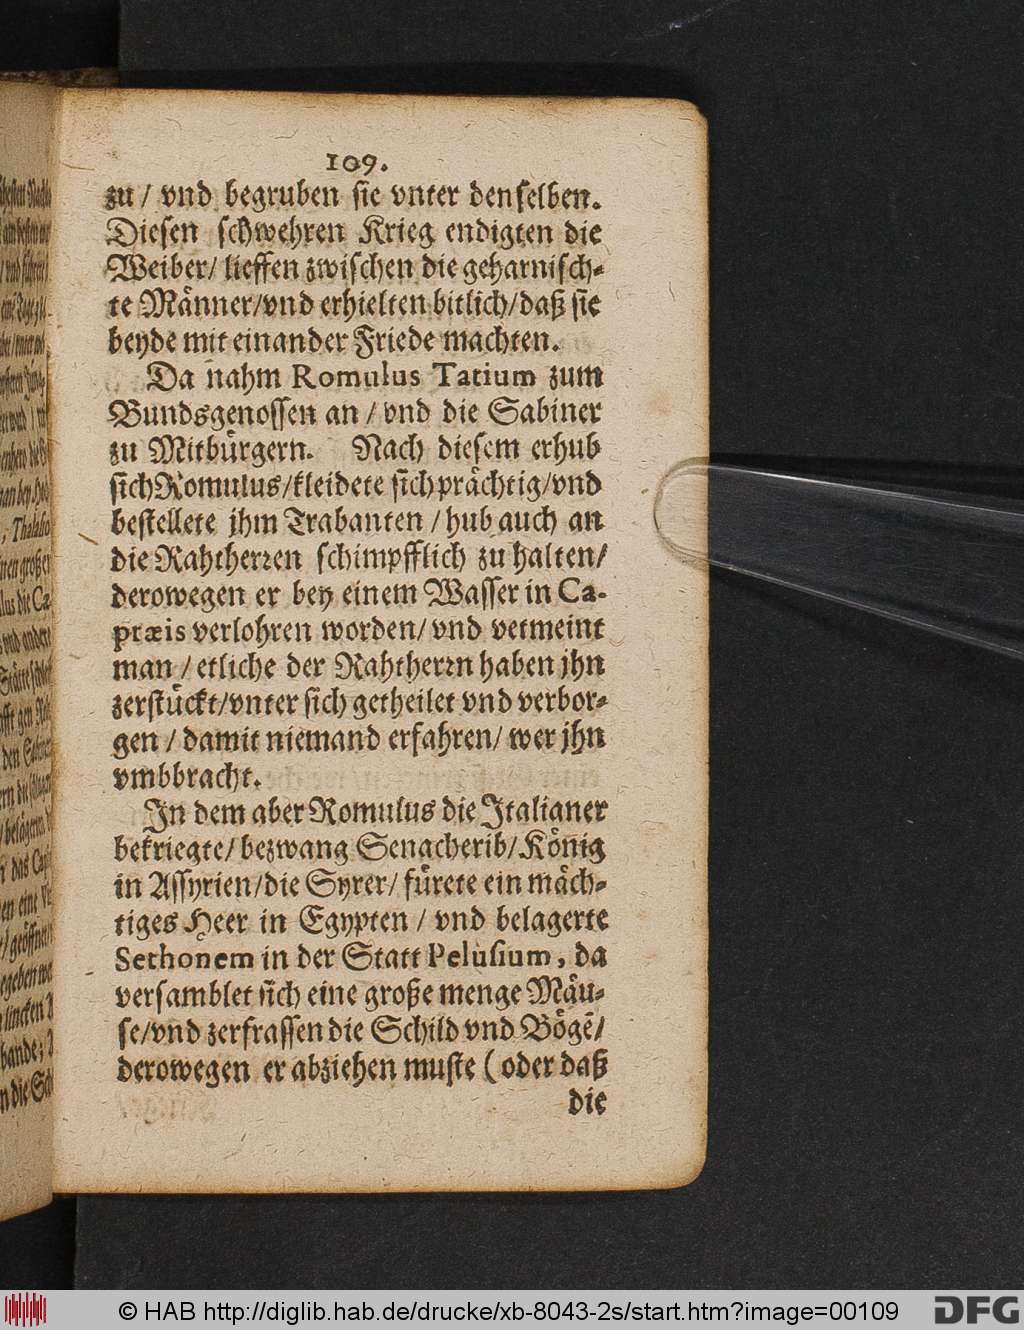 109.
zu / vnd begruben sie vnter denselben.
Diesen schwehren Krieg endigten die
Weiber / lieffen zwischen die geharnisch-
te Männer / vnd erhielten bitlich / daß sie
beyde mit einander Friede machten.
Da nahm Romulus Tatium zum
Bundsgenossen an / vnd die Sabiner
zu Mitbürgern. Nach diesem erhub
sich Romulus / kleidete sich prächtig / vnd
bestellete jhm Trabanten / hub auch an
die Rahtherren schimpfflich zu halten /
derowegen er bey einem Wasser in Ca-
præis verlohren worden / vnd vermeint
man / etliche der Rahtherrn haben jhn
zerstückt / vnter sich getheilet vnd verbor-
gen / damit niemand erfahren / wer jhn
vmbbracht.
In dem aber Romulus die Italianer
bekriegte / bezwang Senacherib / König
in Assyrien / die Syrer / fürete ein mäch-
tiges Heer in Egypten / vnd belagerte
Sethonem in der Statt Pelusium, da
versamblet sich eine große menge Mäu-
se / vnd zerfrassen die Schild vnd Bögẽ /
derowegen er abziehen muste (oder daß
die
© HAB http://diglib.hab.de/drucke/xb-8043-2s/start.htm?image=00109
DFG